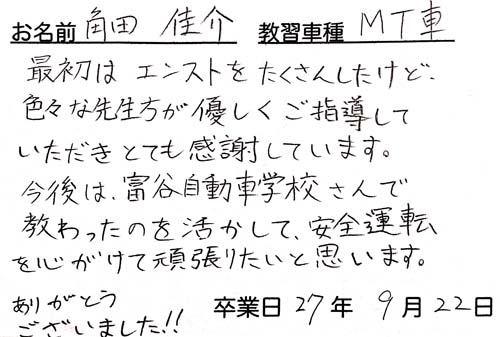 お名前 角田 佳介 教習車種 MT車
最初は エンストを たくさんしたけど、
色々な先生方が優しくご指導して
いただきとても感謝しています。
今後は、富谷自動車学校さんで
教わったのを活かして、安全運転
を心がけて頑張りたいと思います。
ありがとう
ございました!!
卒業日 27年 9月 22日